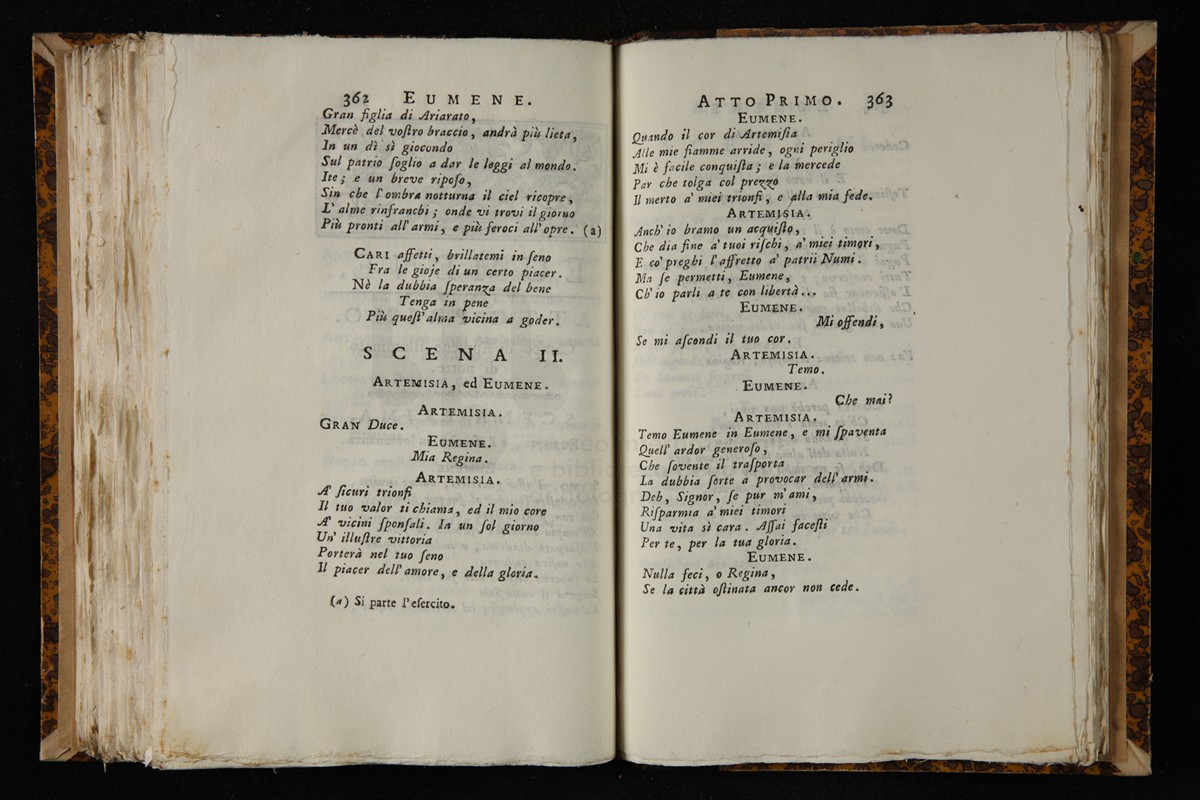 362 EUMENE.
Gran figlia di Ariarato,
Mercè del voſtro braccio, andrà più lieta,
In un dì sì giocondo
Sul patrio ſoglio a dar le leggi al mondo.
Ite; e un breve ripoſo,
Sin che l'ombra notturna il ciel ricopre,
L'alme rinfranchi; onde vi trovi il giorno
Più pronti all'armi, e più feroci all'opre. (a)
CARI affetti, brillatemi in ſeno
Fra le gioje di un certo piacer.
Nè la dubbia ſperanza del bene
Tenga in pene
Più queſt'alma vicina a goder.
SCENA II.
ARTEMISIA, ed EUMENE.
ARTEMISIA.
GRAN Duce.
EUMENE.
Mia Regina.
ARTEMISIA.
A' ſicuri trionfi
Il tuo valor ti chiama, ed il mio core
A' vicini ſponſali. In un ſol giorno
Un' illuſtre vittoria
Porterà nel tuo ſeno
Il piacer dell'amore, e della gloria.
(a) Si parte l'eſercito.
ATTO PRIMO. 363
EUMENE.
Quando il cor di Artemiſia
Alle mie fiamme arride, ogni periglio
Mi è facile conquiſta; e la mercede
Par che tolga col prezzo
Il merto a' miei trionfi, e alla mia fede.
ARTEMISIA.
Anch'io bramo un acquiſto,
Che dia fine a' tuoi riſchi, a' miei timori,
E co' preghi l'affretto a' patrii Numi.
Ma ſe permetti, Eumene,
Ch'io parli a te con libertà...
EUMENE.
Mi offendi,
Se mi aſcondi il tuo cor.
ARTEMISIA.
Temo.
EUMENE.
Che mai?
ARTEMISIA.
Temo Eumene in Eumene, e mi ſpaventa
Quell' ardor generoſo,
Che ſovente il traſporta
La dubbia ſorte a provocar dell'armi.
Deh, Signor, ſe pur m'ami,
Riſparmia a' miei timori
Una vita sì cara. Aſſai faceſti
Per te, per la tua gloria.
EUMENE.
Nulla feci, o Regina,
Se la città oſtinata ancor non cede.